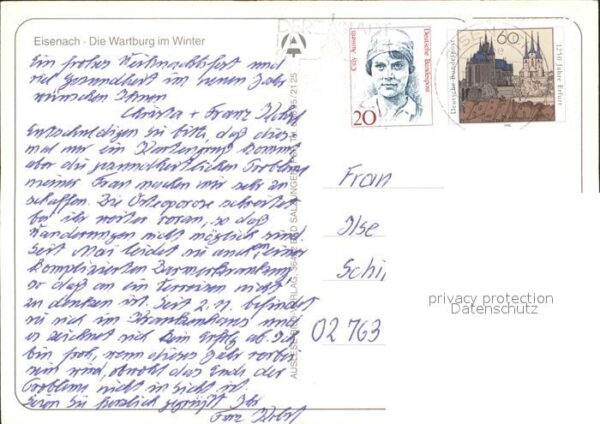 Eisenach · Die Wartburg im Winter
Ein frohes Weihnachtsfest und
viel Gesundheit im neuen Jahr
wünschen Ihnen
Christa + Franz
Entschuldigen Sie bitte, daß dies
mal nur ein Kartengruß kommt
aber die gesundheitlichen Probleme
meiner Frau machen mir sehr zu
schaffen. Die Osteoporose schreitet
bei ihr weiter voran, so daß
Wanderungen nicht möglich sind.
Seit Mai leidet sie an einer
komplizierten Darmerkrankung
so daß an ein Verreisen nicht
zu denken ist. Seit 2.11. befindet
sie sich im Krankenhaus und
es zeichnet sich kein Erfolg ab. Ich
bin froh, wenn dieses Jahr vorbei
sein wird, obwohl das Ende der
Probleme nicht in Sicht ist.
Seien Sie herzlich gegrüßt Ihr
Franz
Cilly Aussem
Deutsche Bundespost
20
60
Deutsche Bundespost
1250 Jahre Erfurt
Frau
Ilse
Schi
02763
privacy protection
Datenschutz